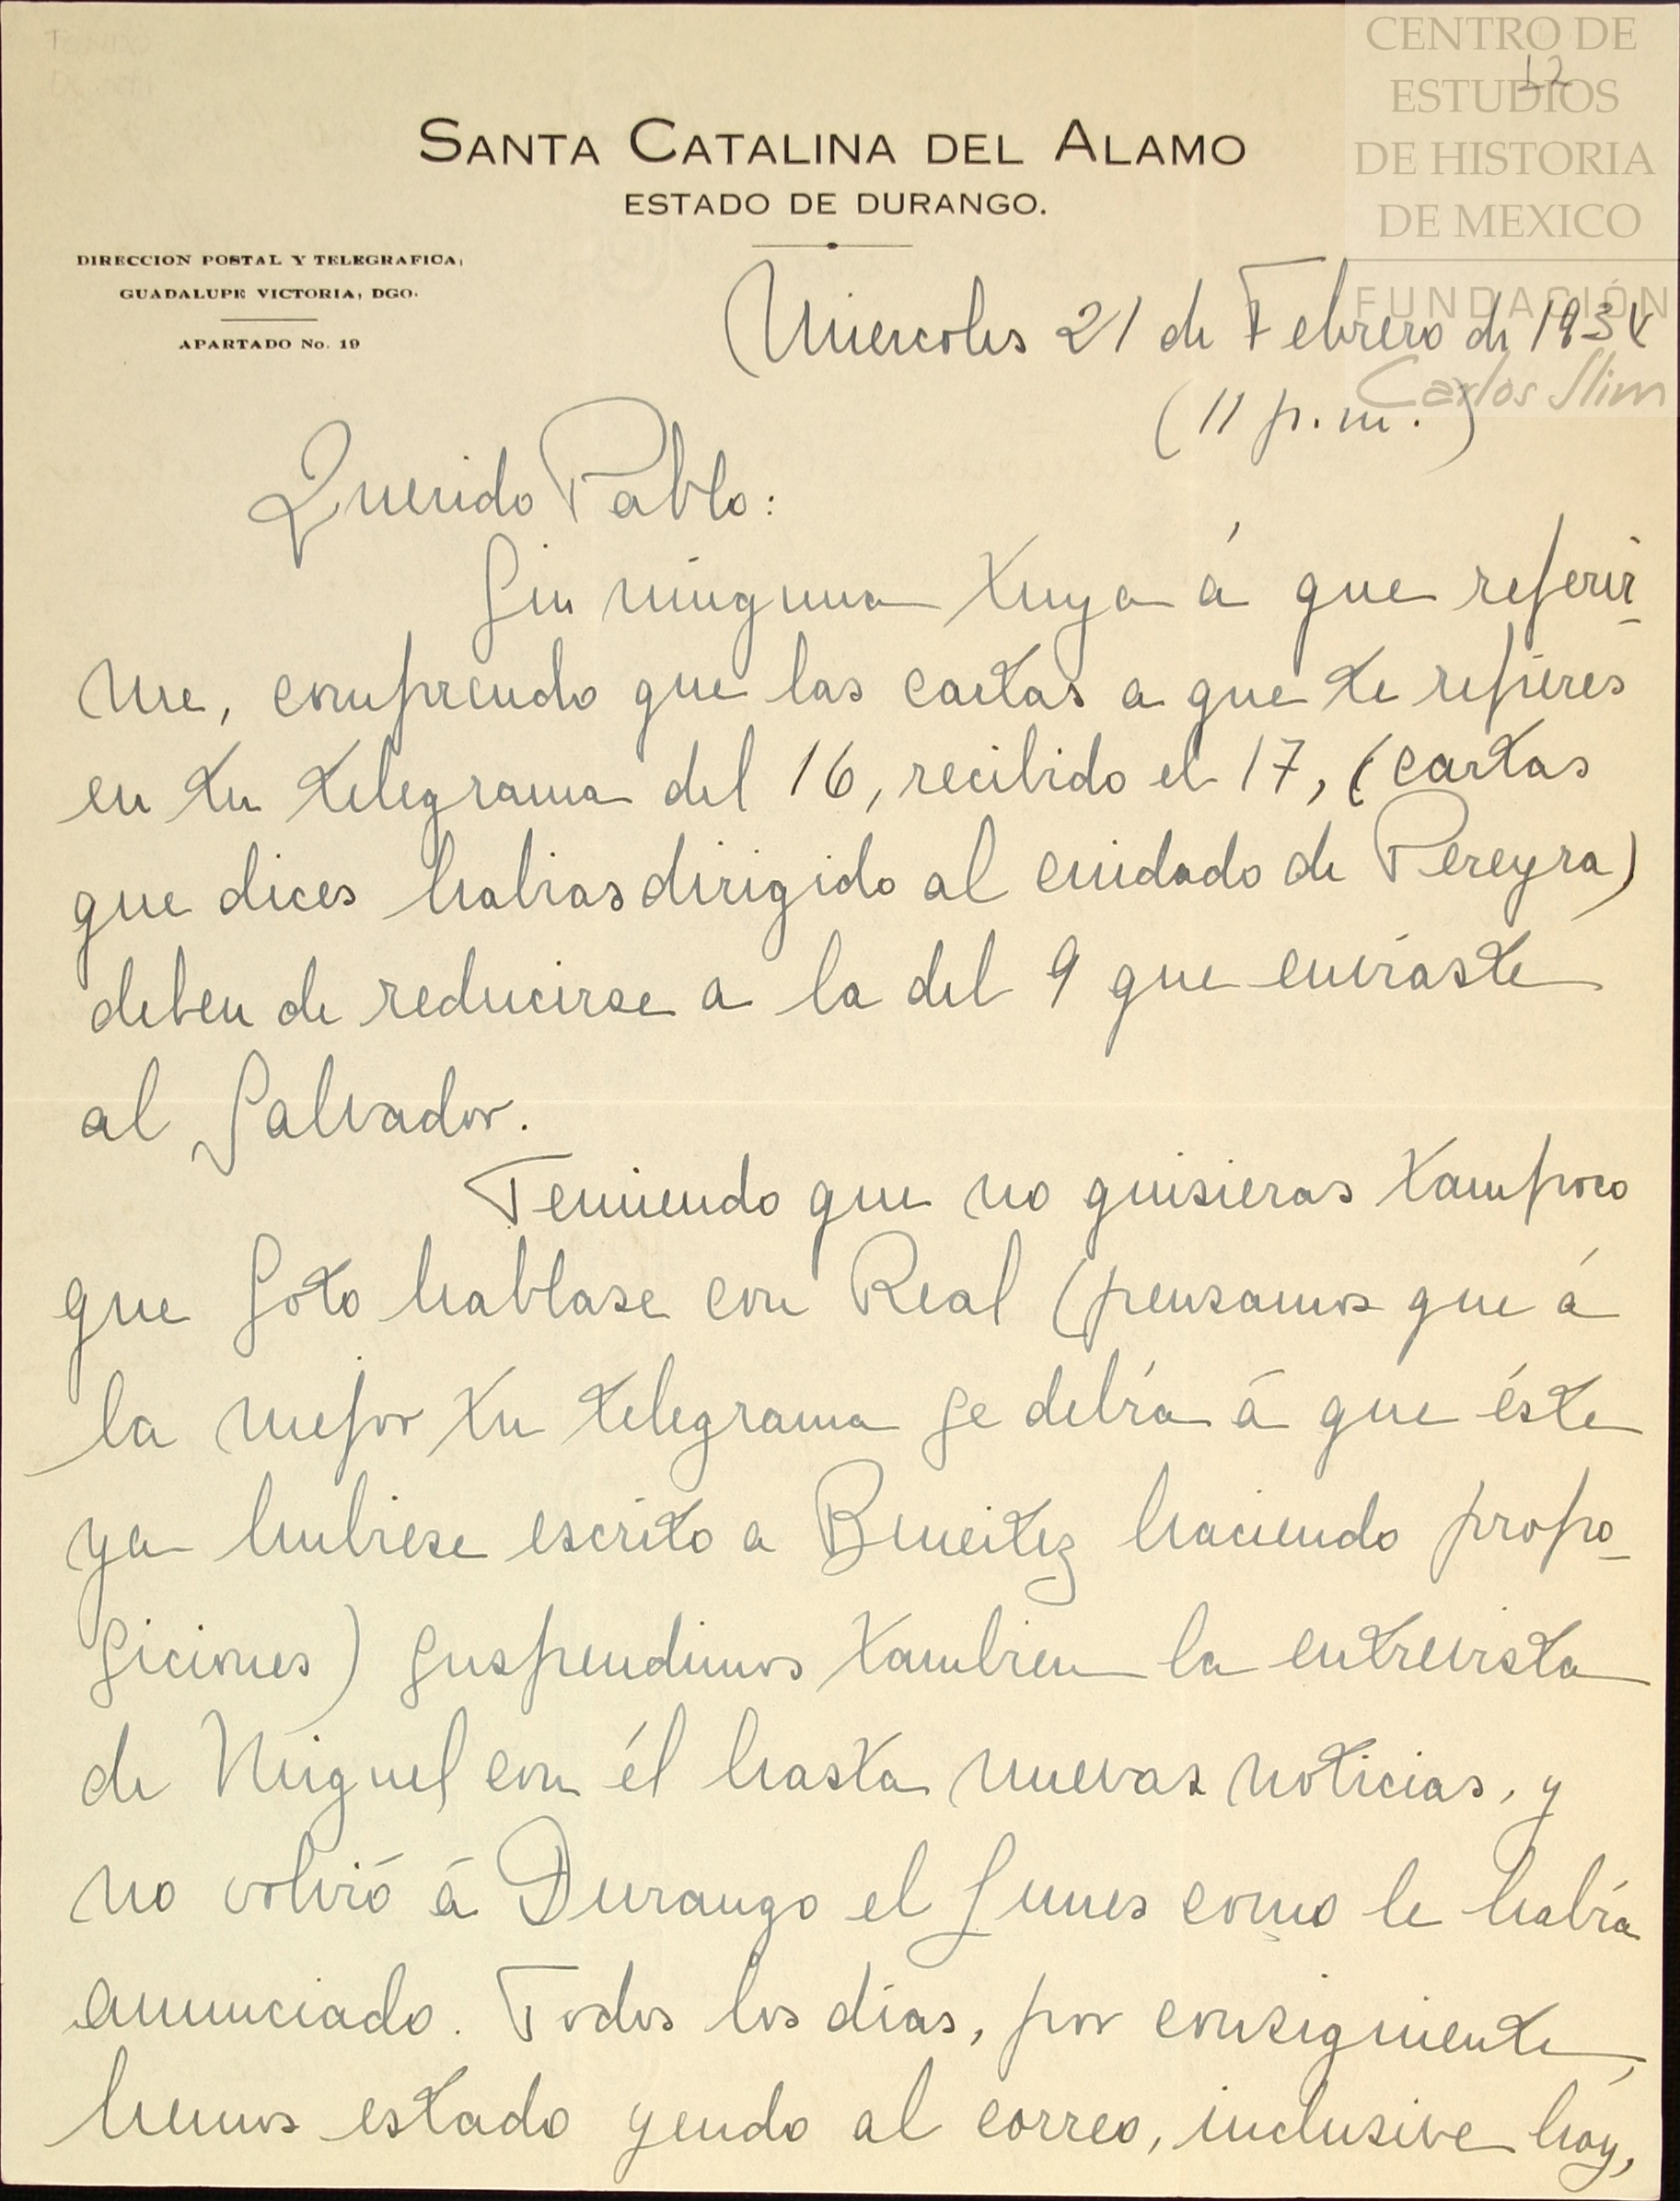 CENTRO DE
ESTUDIOS
DE HISTORIA
DE MEXICO
FUNDACIÓN
Carlos Slim
12
SANTA CATALINA DEL ALAMO
ESTADO DE DURANGO.
DIRECCION POSTAL Y TELEGRAFICA,
GUADALUPE VICTORIA, DGO.
APARTADO No. 19
Miercoles 21 de Febrero de 1934
(11 p.m.)
Querido Pablo:
Sin ninguna tuya á que referir-
me, comprendo que las cartas a que te refieres
en tu telegrama del 16, recibido el 17, (cartas
que dices habias dirigido al cuidado de Pereyra)
deben de reducirse a la del 9 que enviaste
al Salvador.
Temiendo que no quisieras tampoco
que Soto hablase con Real (pensamos que á
la mejor tu telegrama se debía á que éste
ya hubiese escrito a Beneitez haciendo propo-
siciones) suspendimos tambien la entrevista
de Miguel con él hasta nuevas noticias, y
no volvió á Durango el Lunes como le había
anunciado. Todos los días, por consiguiente,
hemos estado yendo al correo, inclusive hoy,